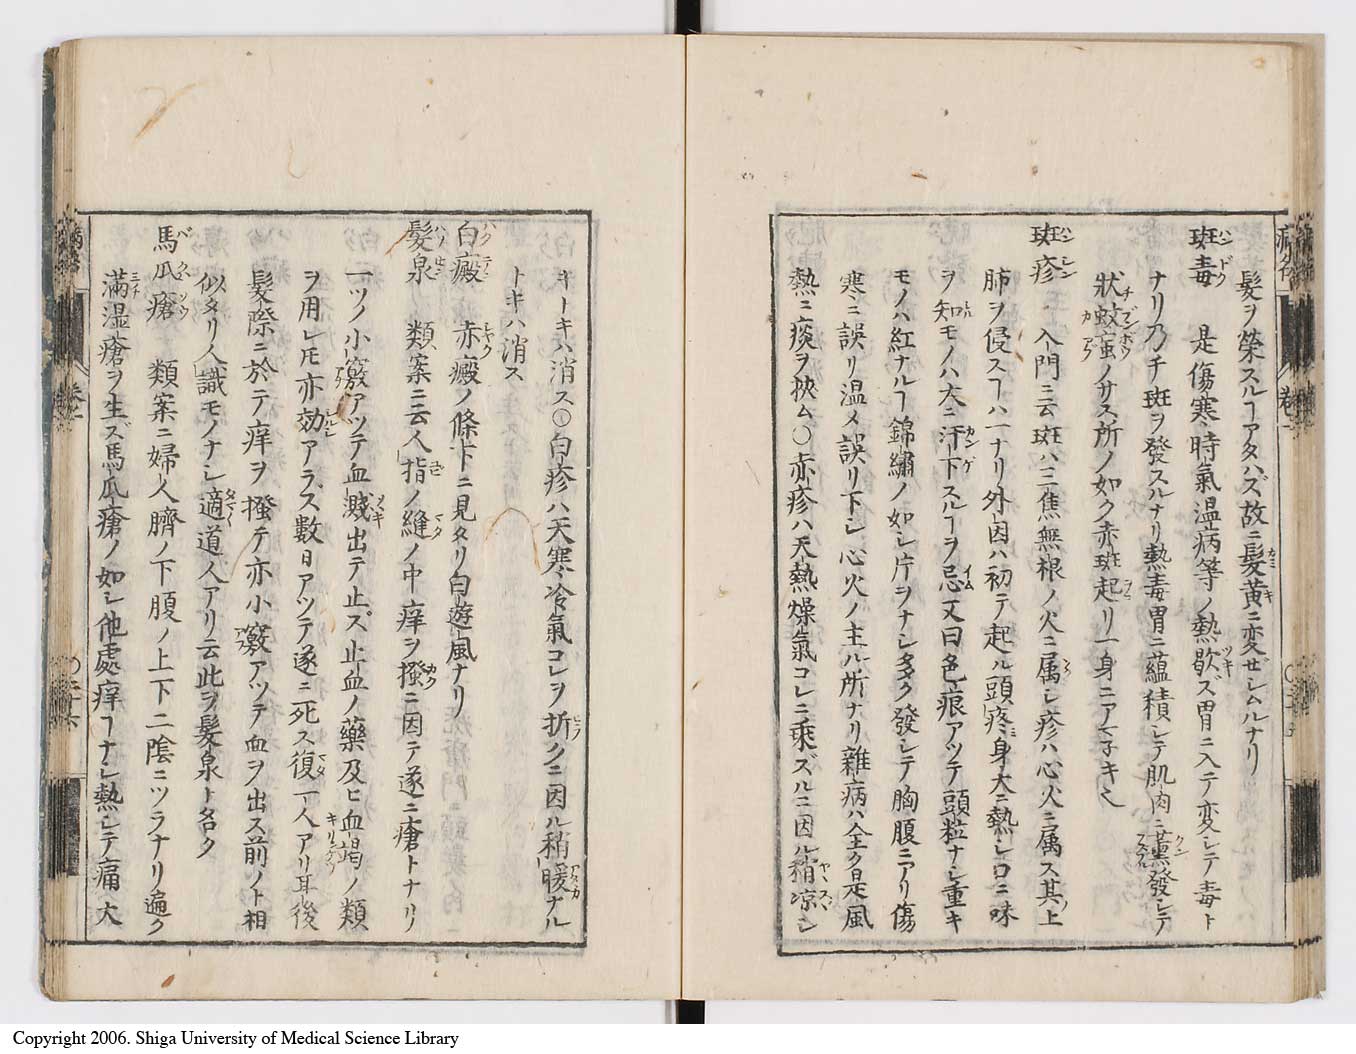 髮ヲ榮スルヿアタハズ故ニ髮黄ニ変ゼシムルナリ
斑毒 是傷寒時氣温病等ノ熱歇ズ胃ニ入テ変シテ毒ト
ナリ乃チ斑ヲ發スルナリ熱毒胃ニ蘊積シテ肌肉ニ薫發シテ
狀蚊䖟ノサス所ノ如ク赤斑起リ一身ニアマ子キ也
斑疹 入門ニ云斑ハ三焦無根ノ火ニ属シ疹ハ心火ニ属ス其上
肺ヲ侵スヿハ一ナリ外因ハ初テ起ル頭疼身大ニ熱シ口ニ味
ヲ知モノハ大ニ汗下スルヿヲ忌又曰色痕アツテ頭粒ナシ重キ
モノハ紅ナルヿ錦繡ノ如シ片ヲナシ多ク發シテ胸腹ニアリ傷
寒ニ誤リ温メ誤リ下シ心火ノ主ル所ナリ雜病ハ全ク是風
熱ニ痰ヲ挾ム〇赤疹ハ天熱燥氣コレニ乘ズルニ因ル稍凉シ
キトキハ消ス〇白疹ハ天寒冷氣コレヲ折クニ因ル稍暖ナル
トキハ消ス
白癜 赤癜ノ條下ニ見タリ白遊風ナリ
髮泉 類案ニ云人指ノ縫ノ中痒ヲ搔ニ因テ遂ニ瘡トナリ
一ツノ小竅アツテ血濺出テ止ズ止血ノ藥及ヒ血竭ノ類
ヲ用レ𪜈亦効アラス數日アツテ遂ニ死ス復一人アリ耳後
髮際ニ於テ痒ヲ搔テ亦小竅アツテ血ヲ出ス前ノト相
似タリ人識モノナシ適道人アリ云此ヲ髮泉ト名ク
馬瓜瘡 類案ニ婦人臍ノ下腹ノ上下二陰ニツラナリ遍ク
滿湿瘡ヲ生ズ馬瓜瘡ノ如シ他處痒ヿナシ熱シテ痛大
Copyright 2006. Shiga University of Medical Science Library